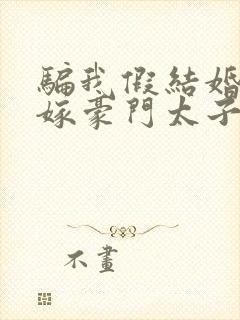 騙我假結婚
嫁豪門太子
不畫